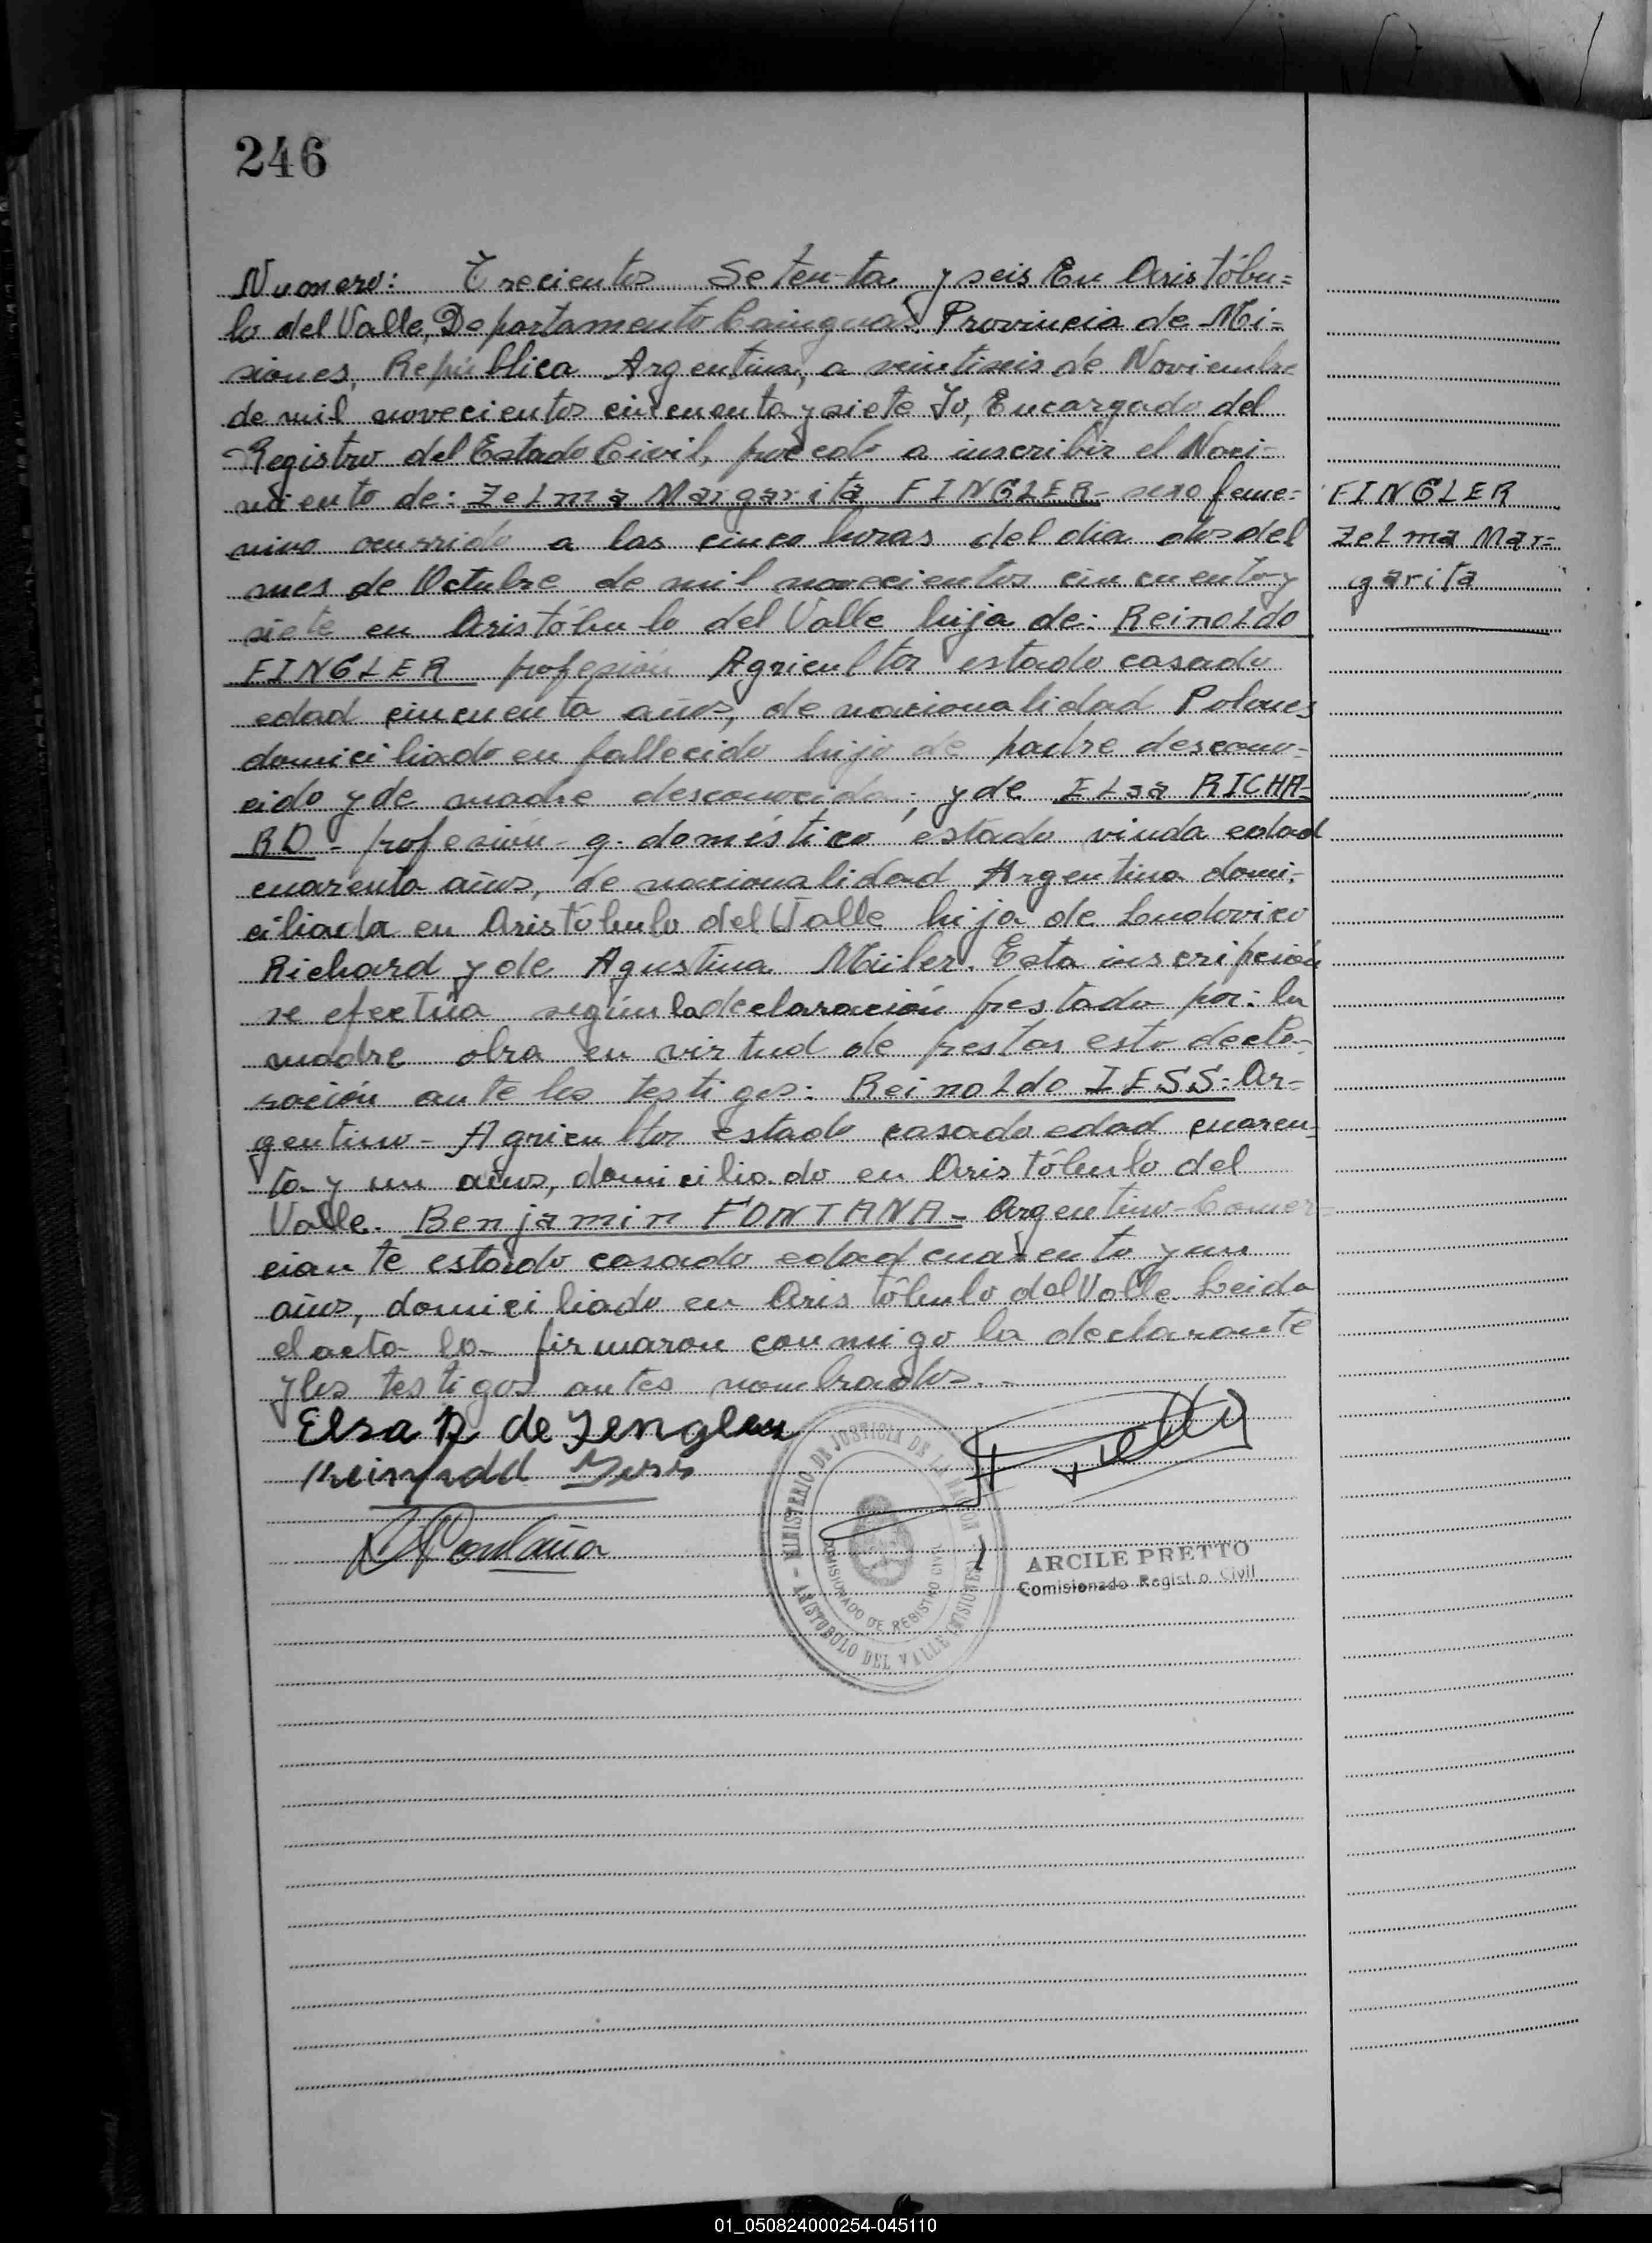 246
Numero: Trecientos Setenta y seis En Aristóbu=
lo del Valle, Departamento Cainguas Provincia de Mi=
siones, República Argentina, a veintiseis de Noviembre
de mil novecientos cincuenta y siete Yo, Encargado del
Registro del Estado Civil, procedo a inscribir el Naci-
miento de: Zelma Margarita FINGLER- sexo feme=
nino ocurrido a las cinco horas del día dos del
mes de Octubre de mil novecientos cincuenta y
siete en Aristóbulo del Valle hija de: Reinoldo
FINGLER profesión Agricultor estado casado
edad cincuenta años, de nacionalidad Polones
domiciliado en fallecido hijo de padre descono-
cido y de madre desconocida; y de ELsa RICHA-
RD - profesión - q. doméstico estado viuda edad
cuarenta años, de nacionalidad Argentina domi-
ciliada en Aristóbulo del Valle hija de Ludovico
Richard y de Agustina Müler. Esta inscripción
se efectúa según la declaración prestada por: la
madre obra en virtud de prestar esta decla-
ración ante los testigos: Reinoldo IESS: Ar-
gentino - Agricultor estado casado edad cuaren-
ta y un años, domiciliado en Aristóbulo del
Valle. Benjamin FONTANA - Argentino - Comer-
ciante estado casado edad cuarenta y un
años, domiciliado en Aristóbulo del Valle Leida
el acta la firmaron conmigo la declarante
y los testigos antes nombrados. -
FINGLER
Zelma Mar=
garita
Elsa R de Fengler
Fontana
MINISTERIO DE JUSTICIA DE LA NACION
COMISIONADO DE REGISTRO CIVIL
ARISTOBOLO DEL VALLE (MISIONES)
ARCILE PRETTO
Comisionado Regist.o Civil
01_050824000254-045110